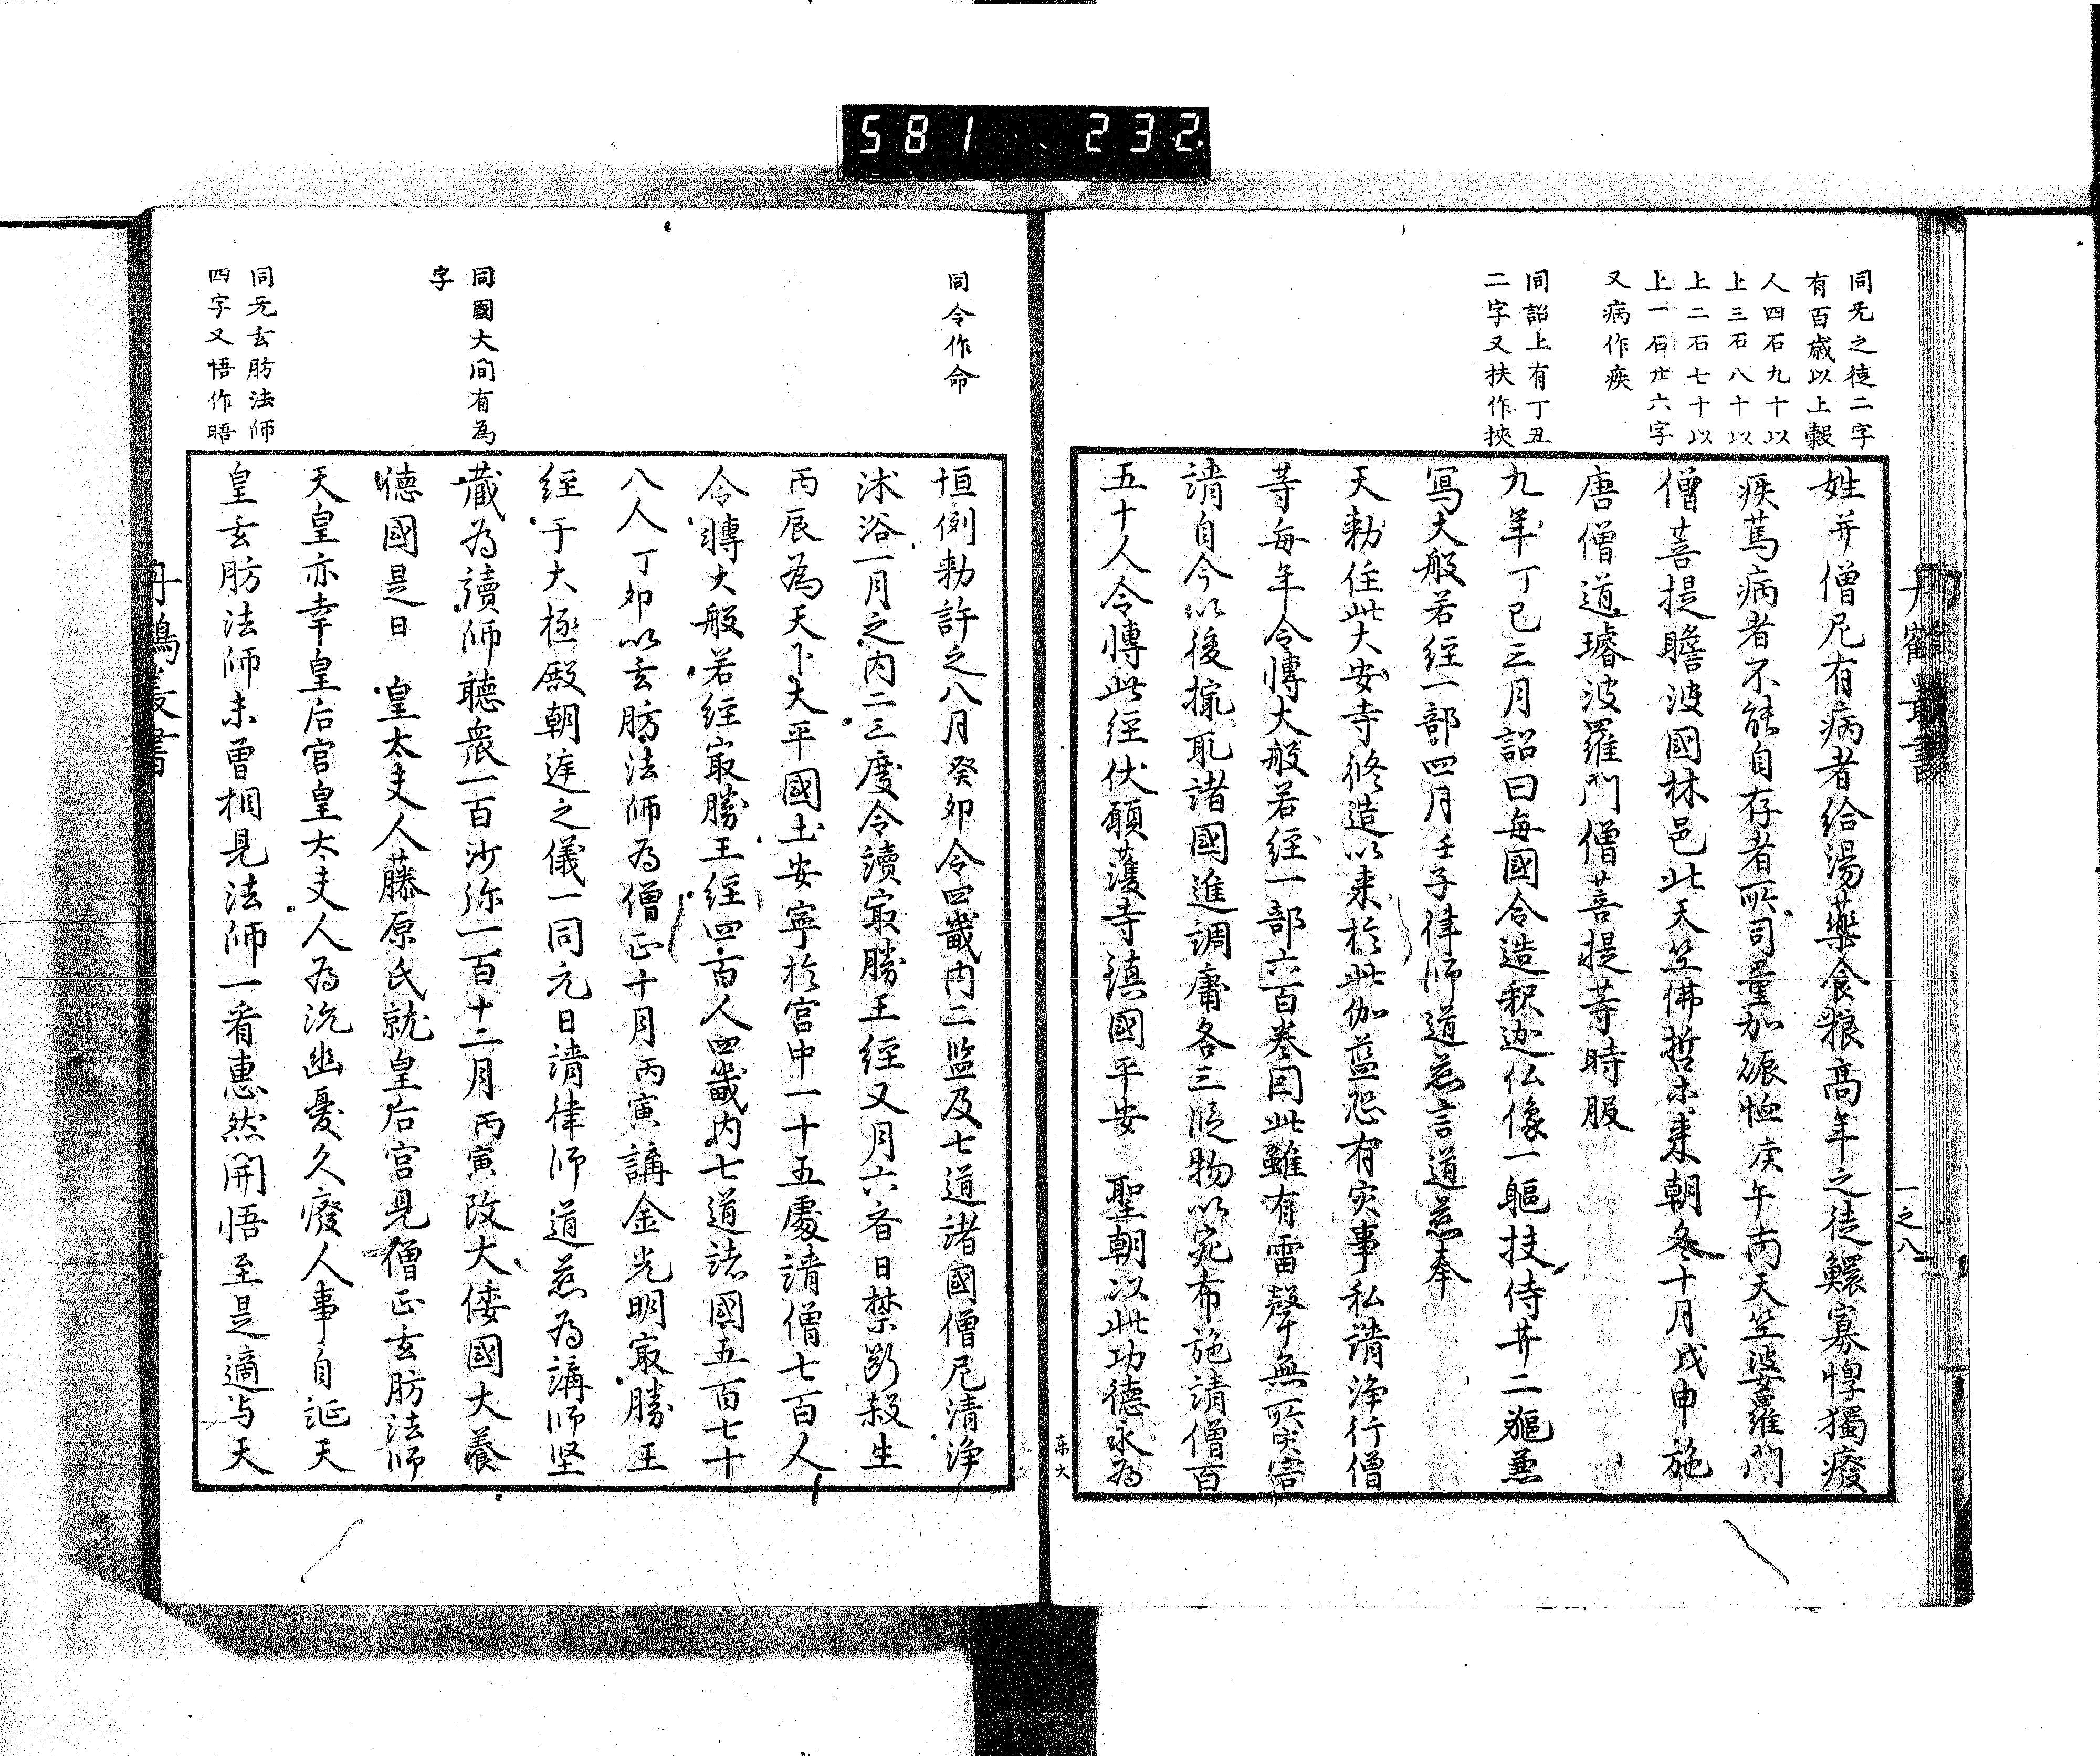 581 232
丹鶴叢書
一之八
同旡之徒二字
有百歳以上穀
人四石九十以
上三石八十以
上二石七十以
上一石廿六字
又病作疾
同詔上有丁丑
二字又扶作挾
姓并僧尼有病者給湯藥食粮高年之徒鰥寡惸獨癈
疾篤病者不能自存者所司量加賑恤庚午丙天竺婆羅門
僧菩提瞻波國林邑北天竺佛哲等来朝冬十月戊申施
唐僧道璿波羅門僧菩提等時服
九年丁巳三月詔曰毎國令造釈迦仏像一軀技侍并二軀兼
寫大般若經一部四月壬子律師道慈言道慈奉
天勅住此大安寺修造以来於此伽藍恐有灾事私請浄行僧
等毎年令轉大般若經一部六百巻因此雖有雷聲無所灾害
請自今以後撮取諸國進調庸各三段物以宛布施請僧百
五十人令轉此経伏願護寺鎮國平安 聖朝以此功德永為
东大
同令作命
同國大間有為
字
同旡玄肪法師
四字又悟作晤
恒例勅許之八月癸卯令四畿内二监及七道諸國僧尼清浄
沐浴一月之内二三度令讀㝡勝王経又月六斎日禁断殺生
丙辰為天下太平國土安寧於宮中一十五處請僧七百人
令轉大般若経㝡勝王経四百人四畿内七道諸國五百七十
八人丁卯以玄肪法師為僧正十月丙寅講金光明㝡勝王
経于大極殿朝遅之儀一同元日請律師道慈為講師坚
蔵為讀師聴衆一百沙弥一百十二月丙寅改大倭國大養
德國是日 皇太夫人藤原氏就皇后宮見僧正玄肪法師
天皇亦幸皇后官皇太夫人為沉幽憂久癈人事自誕天
皇玄肪法師未曽相見法師一看惠然開悟至是適与天